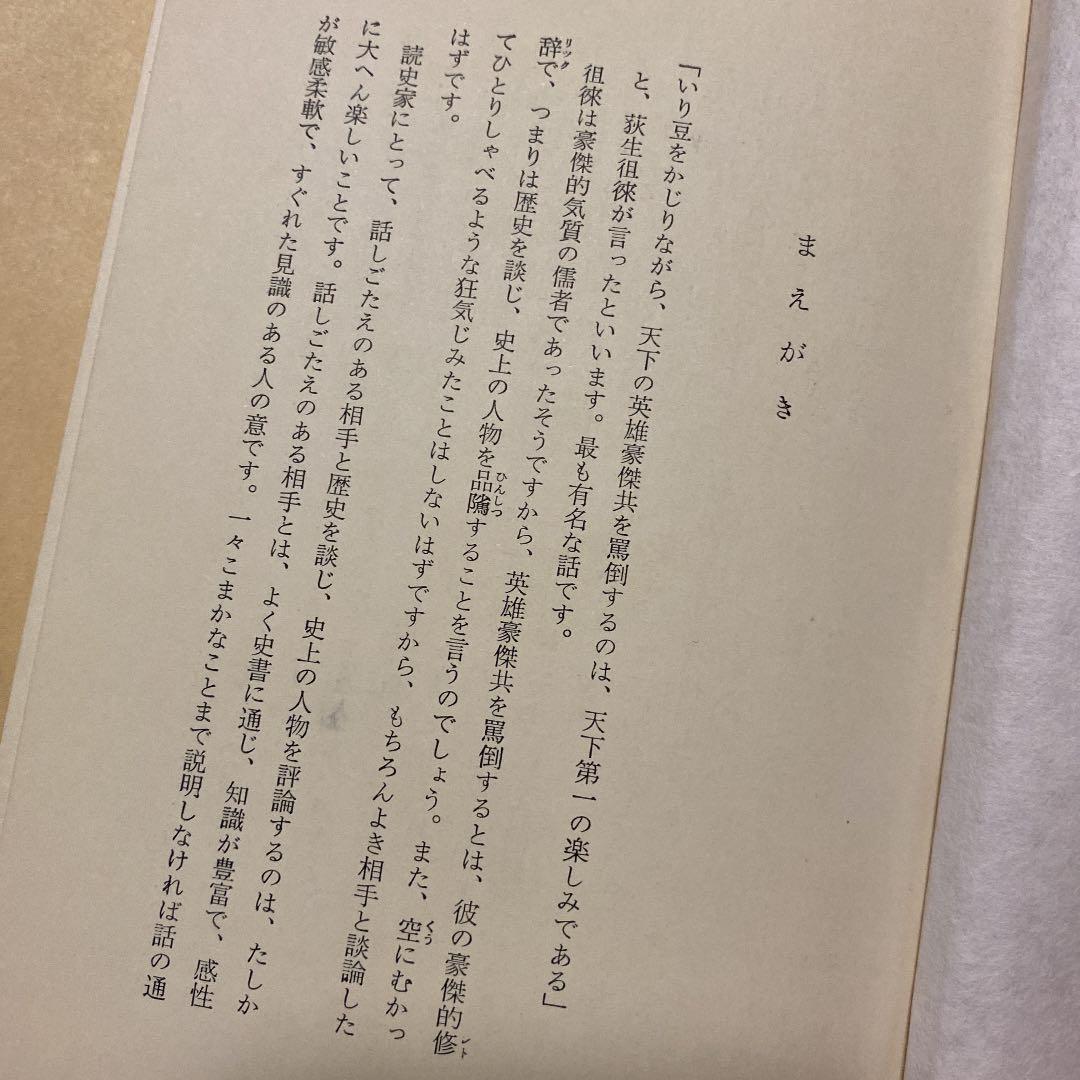 まえがき
「いり豆をかじりながら、天下の英雄豪傑共を罵倒するのは、天下第一の楽しみである」
と、荻生徂徠が言ったといいます。最も有名な話です。
徂徠は豪傑的気質の儒者であったそうですから、英雄豪傑共を罵倒するとは、彼の豪傑的修
辞で、つまりは歴史を談じ、史上の人物を品隲することを言うのでしょう。また、空にむかっ
てひとりしゃべるような狂気じみたことはしないはずですから、もちろんよき相手と談論した
はずです。
読史家にとって、話しごたえのある相手と歴史を談じ、史上の人物を評論するのは、たしか
に大へん楽しいことです。話しごたえのある相手とは、よく史書に通じ、知識が豊富で、感性
が敏感柔軟で、すぐれた見識のある人の意です。一々こまかなことまで説明しなければ話の通